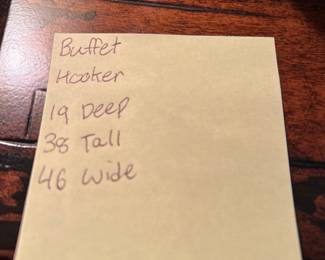 Buffet
Hooker
19 Deep
38 Tall
46 Wide